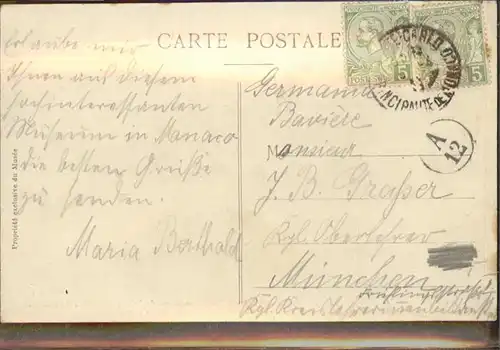 CARTE POSTALE
Erlaube mir
Ihnen aus diesem
hochinteressanten
Museum in Monaco
die besten Grüße
zu senden.
Maria Berthold
Propriété exclusive du Musée
Germania
Bavière
Monsieur
J. B. Graßer
Kgl. Oberlehrer
München
Kgl. Kreislehrerinnenbildungs
MONTE-CARLO
PRINCIPAUTÉ DE MONACO
5
5
A
12